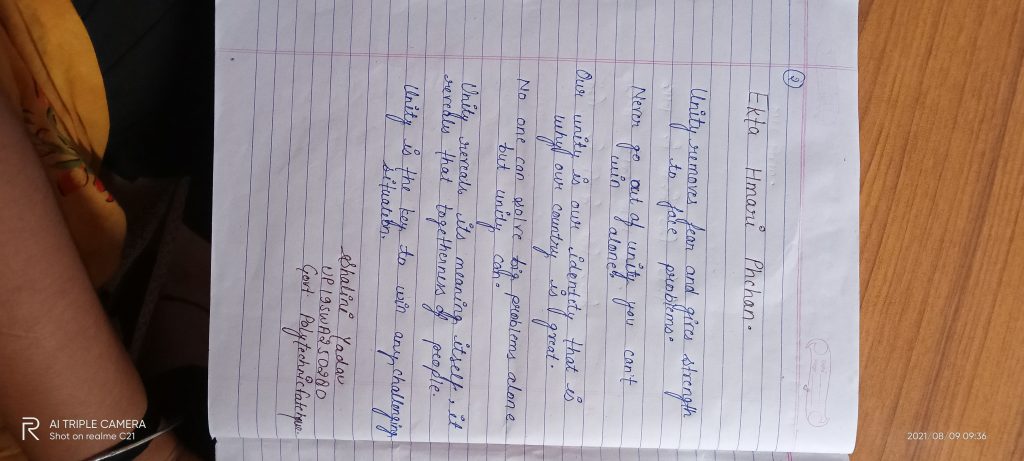 2
Ekta Hmari Phchan.
Unity removes fear and gives strength
to face problems
Never go out of unity you can't
win alone
Our unity is our identity that is
why our country is great.
No one can solve big problems alone
but unity can.
Unity reveals its meaning itself, it
reveals that togetherness of people.
Unity is the key to win any challenging
situation.
Shalini Yadav
UP19SWA250280
Govt Polytechnic fatehpur
R AI TRIPLE CAMERA
Shot on realme C21
2021/08/09 09:36